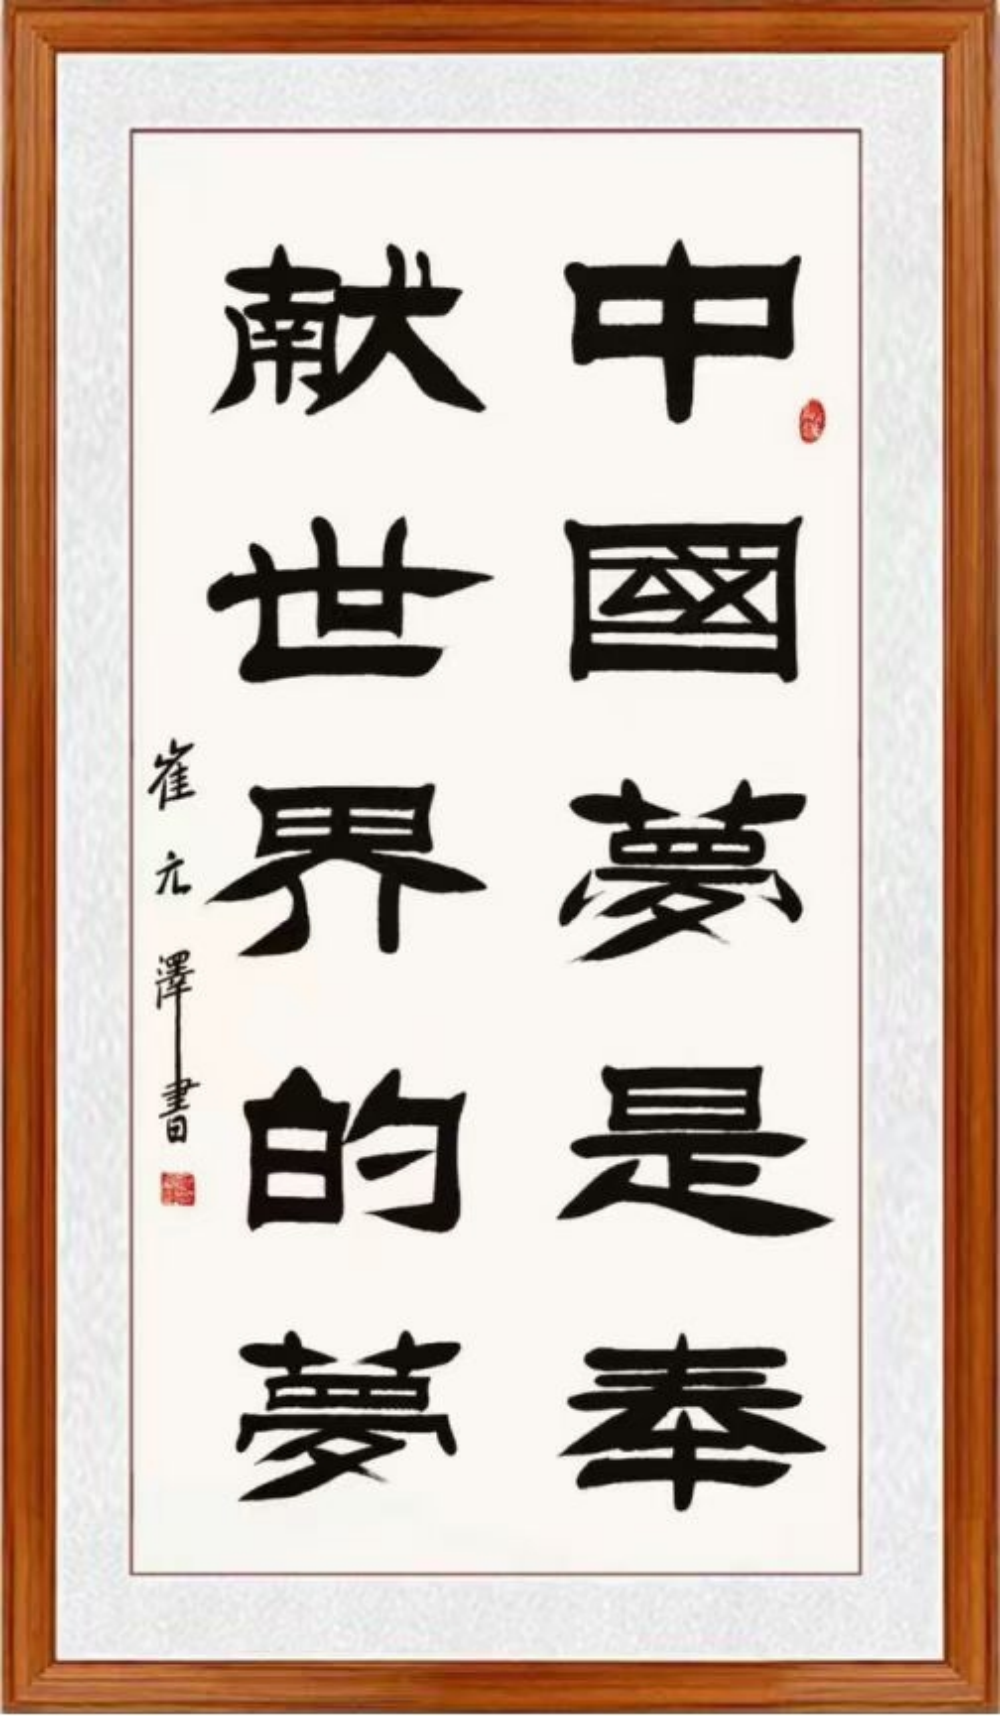 中國夢是奉
献世界的夢
崔元澤書